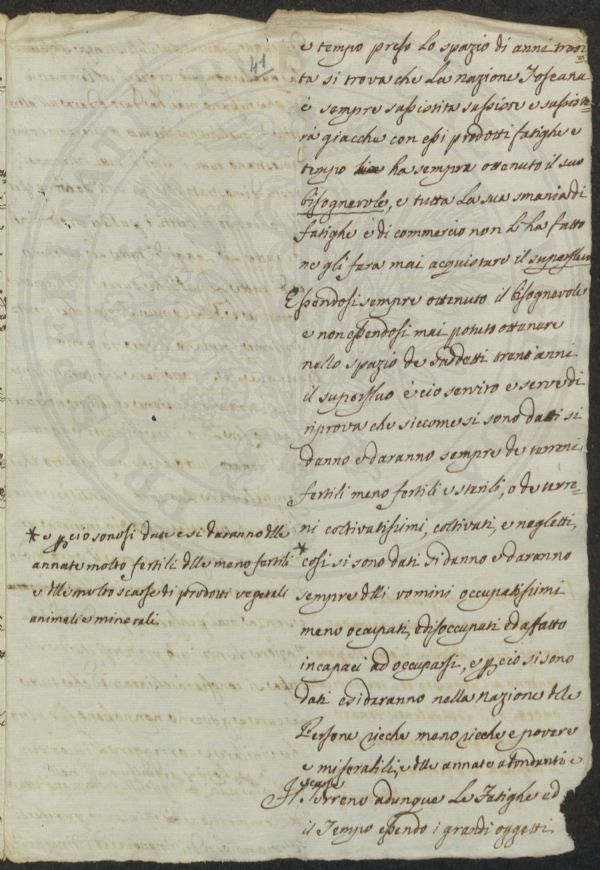 41
e tempo preso lo spazio di anni tren
ta si trova che la nazione Toscana
è sempre sussistita sussiste e sussiste
rà giacche con essi prodotti fatighe e
tempo ha sempre ottenuto il suo
bisognevole, e tutta la sua smania di
fatighe e di commercio non li ha fatto
ne gli fara mai acquistare il superfluo
Essendosi sempre ottenuto il bisognevole
e non essendosi mai potuto ottenere
nello spazio de sudetti trent'anni
il superfluo è ciò servito e serve di
riprova che siccome si sono dati si
danno e daranno sempre de terreni
fertili meno fertili e sterili, o de terre
ni coltivatissimi, coltivati, e negletti,
* cosi si sono dati si danno e daranno
sempre delli uomini occupatissimi
meno occupati, e disoccupati ed affatto
incapaci ad occuparsi, e perciò si sono
dati e si daranno nella nazione delle
Persone ricche meno ricche e povere
e miserabili, e delle annate abondanti e
scarse
Il Terreno adunque le Fatighe ed
il Tempo essendo i grandi oggetti
* e perciò sonosi date e si daranno delle
annate molto fertili delle meno fertili
e delle molto scarse di prodotti vegetali
animali e minerali